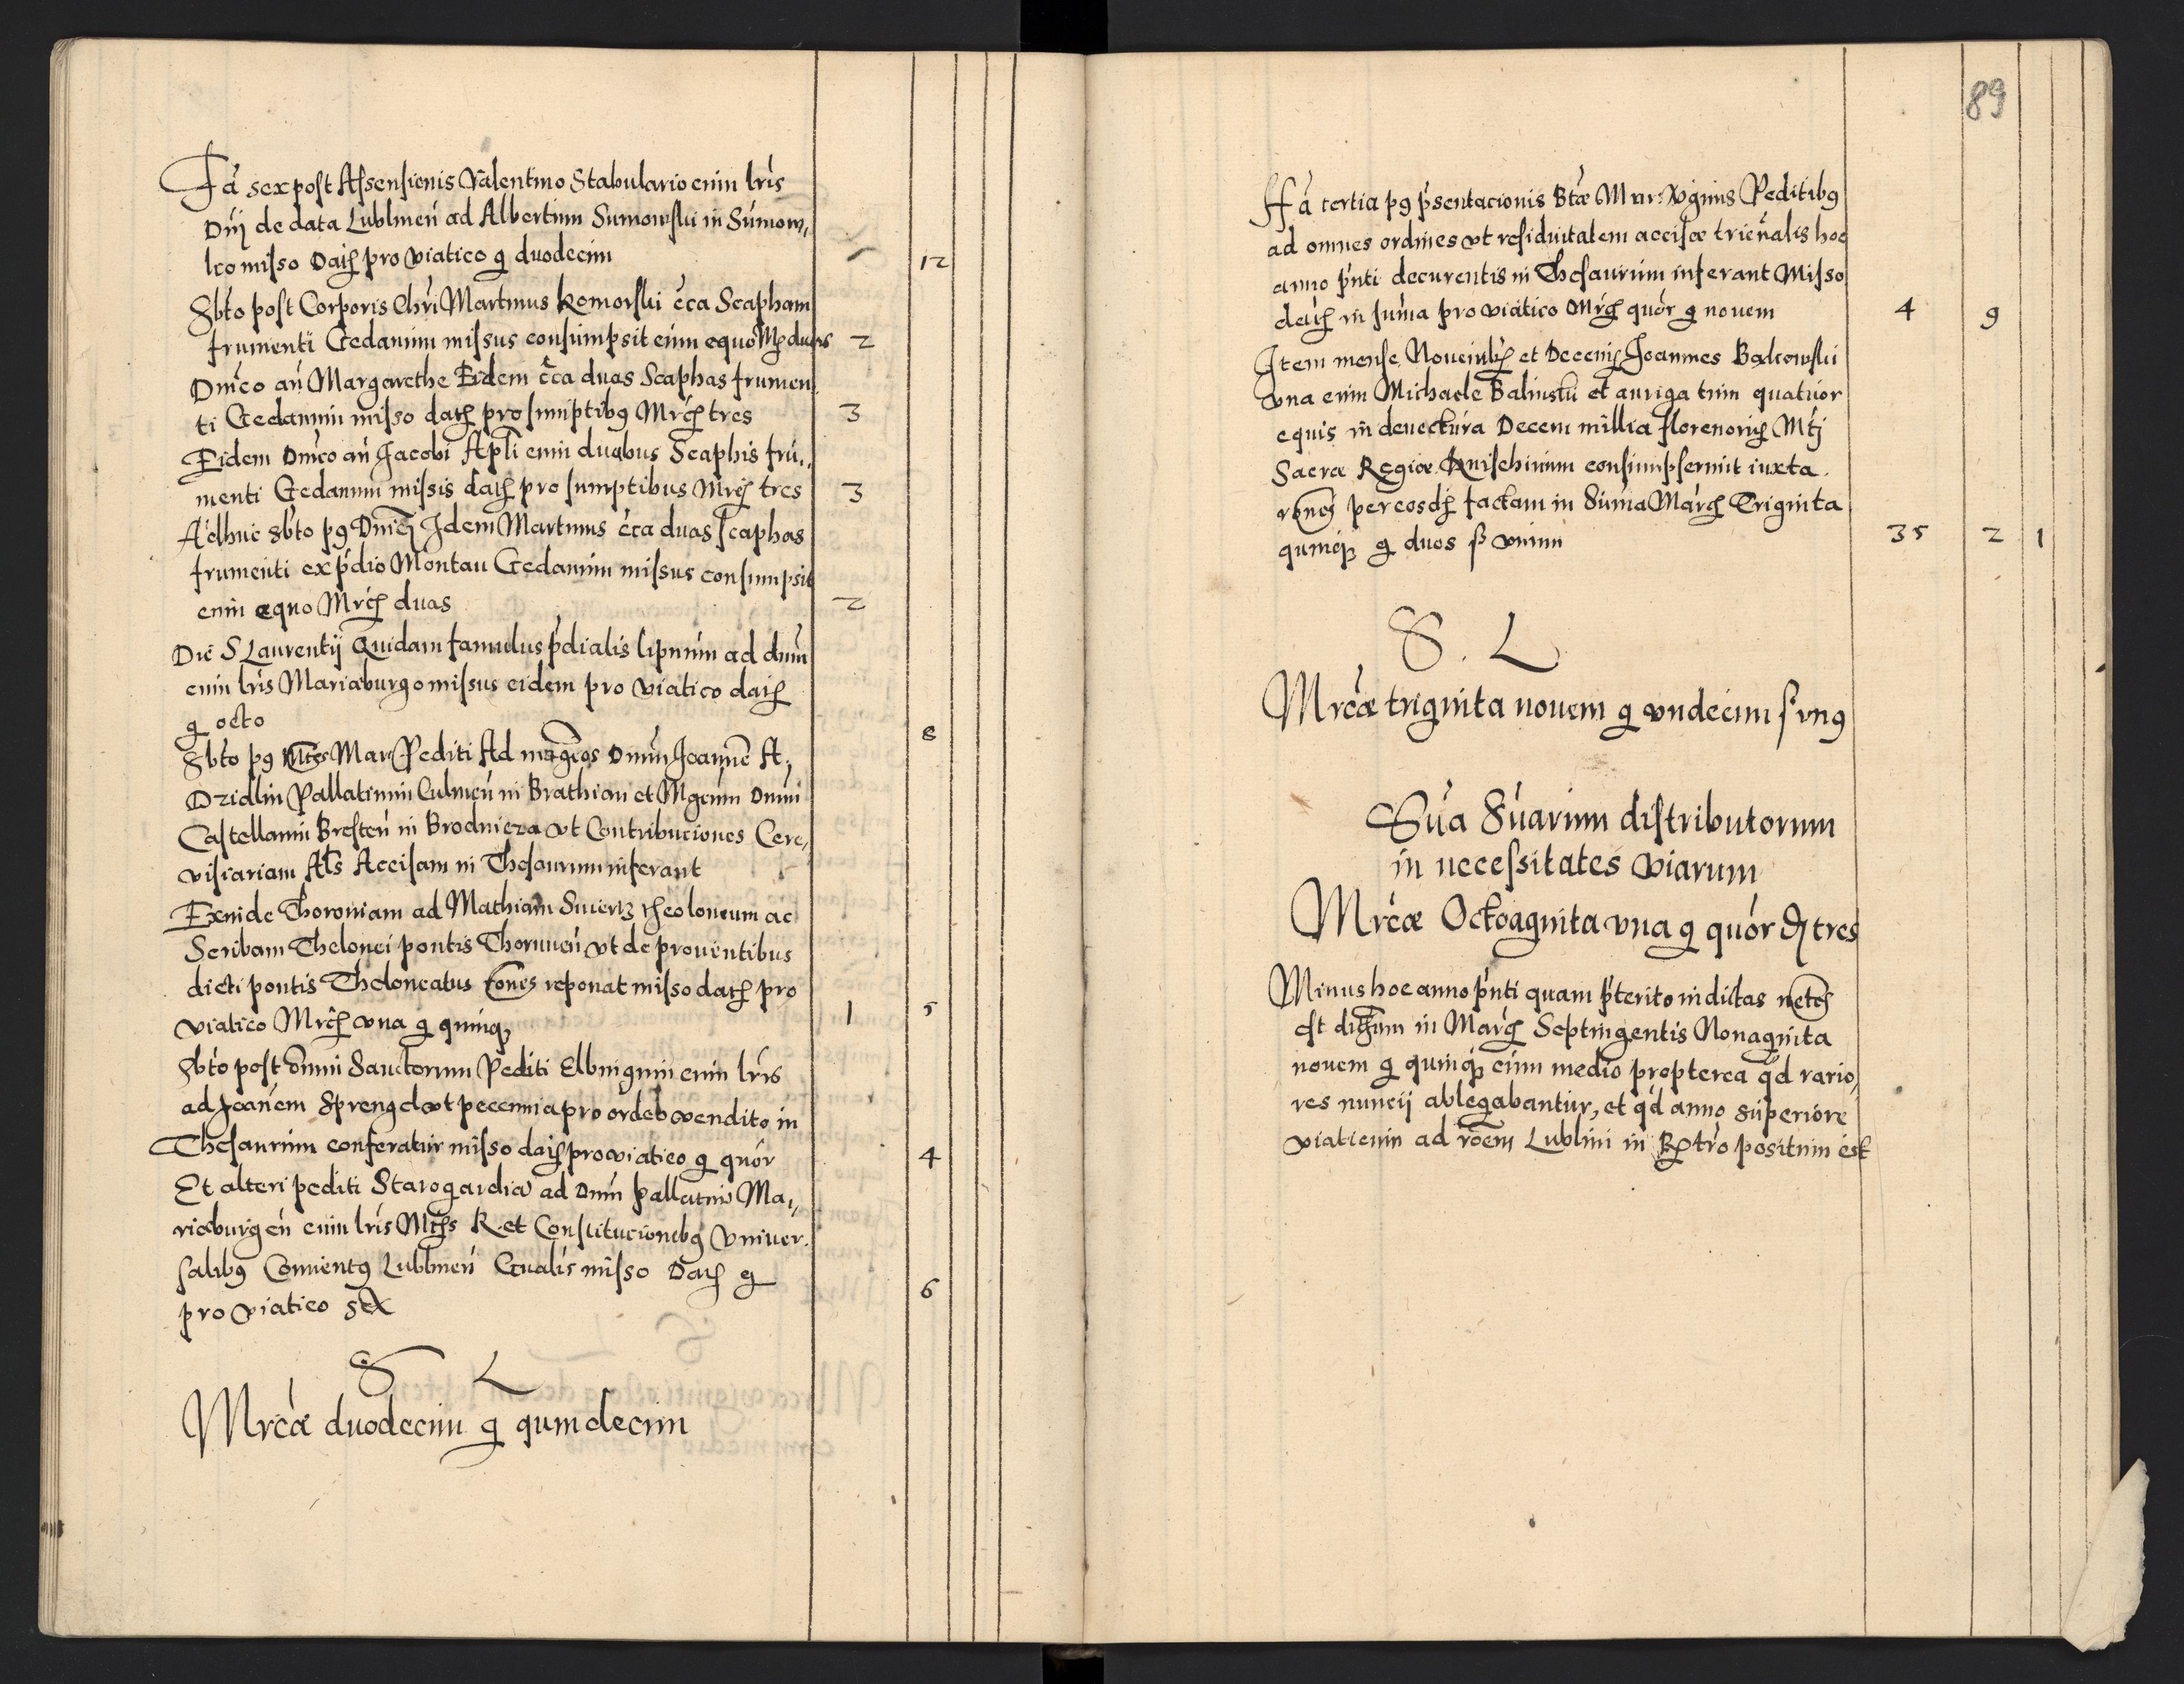 Fa sex post Assensionis Valentino Stabulario cum lris
Dni de data Lublineñ ad Albertum Sumowski in Sumow,
lco misso Datȝ pro viatico g duodecim 12
Sbto post Corporis Chri Martinus Komorski c̃ca Scapham
frumenti Gedanum missus consumpsit cum equo Mrcȝ duas 2
Dnico añ Margarethe Eidem c̃ca duas Scaphas frumen
ti Gedanum misso datȝ pro sumptibꝯ Mrcȝ tres 3
Eidem Dnico añ Jacobi Apli cum duabus Scaphis fru,,
menti Gedanum missis datȝ pro sumptibus Mrcȝ tres 3
Adhuc sbto pꝯ Dnicȝ Idem Martinus c̃ca duas scaphas
frumenti ex p̃dio Montau Gedanum missus consumpsit
cum equo Mrcȝ duas 2
Die S Laurentij Quidam famulus p̃dialis lipnum ad dnum
cum lris Mariæburgo missus eidem pro viatico datȝ
g octo 8
Sbto pꝯ Mar Pediti Ad mgcos Dnum Joannē A,
Dzialin Pallatinum Culmeñ in Brathian et Mgcum Dnum
Castellanum Bresteñ in Brodnicza vt Contribuciones Cere,
visiariam Als Accisam in Thesaurum inferant
Exinde Thoroniam ad Mathiam Swertz theoloneum ac
Scribam Thelonei pontis Thorunieñ vt de prouentibus
dicti pontis Theloneatus rones reponat misso datȝ pro
viatico Mrcȝ vna g quinqȝ 1 5
Sbto post omni Sanctorum Pediti Elbingum cum lris
ad Joanem Sprengel vt pecunia pro ordeo vendito in
Thesaurum conferatur misso datȝ pro viatico g quor 4
Et alteri pediti Starogardia ad Dnum pallatinū Ma,,
rieburgeñ cum lris Mtis R. et Constitucionibꝯ Vniuer.
salibꝯ Conuentꝯ Lublineñ Gnalis misso Datȝ g
pro viatico sex 6
S L
Mrcæ duodecim g quindecim
89
Fa tertia pꝯ p̃sentacionis Btæ Mar: Vginis Peditibꝯ
ad omnes ordines vt residuitatem accisæ trieñalis hoc
anno p̃nti decurentis in Thesaurum inferant Misso
datȝ in suma pro viatico Mrcȝ quor g nouem 4 9
Item mense Nouembȝ et Decemȝ Joannes Balcowski
vna cum Michaele Balinski et auriga tum quatuor
equis in deuectura Decem millia florenorūȝ Mtj
Sacræ Regiæ Knischinum consumpserunt iuxta
ronȝ per eosdȝ factam in Suma Marcȝ Triginta
quinqȝ g duos ß vnum 35 2 1
S. L
Mrcæ triginta nouem g vndecim s vnꝯ
Sua Suarum distributorum
in necessitates viarum
Mrcæ Octoaginta vna g quor tres
Minus hoc anno p̃nti quam p̃terito in dictas
est in Marcȝ Septingentis Nonaginta
nouem g quinqȝ cum medio propterea qd rario,
res nuncij ablegabantur, et qd anno superiore
viaticum ad roem Lublini in positum est